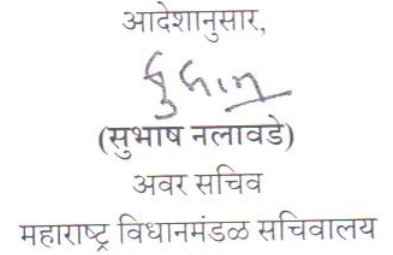 आदेशानुसार,
(सुभाष नलावडे)
अवर सचिव
महाराष्ट्र विधानमंडळ सचिवालय